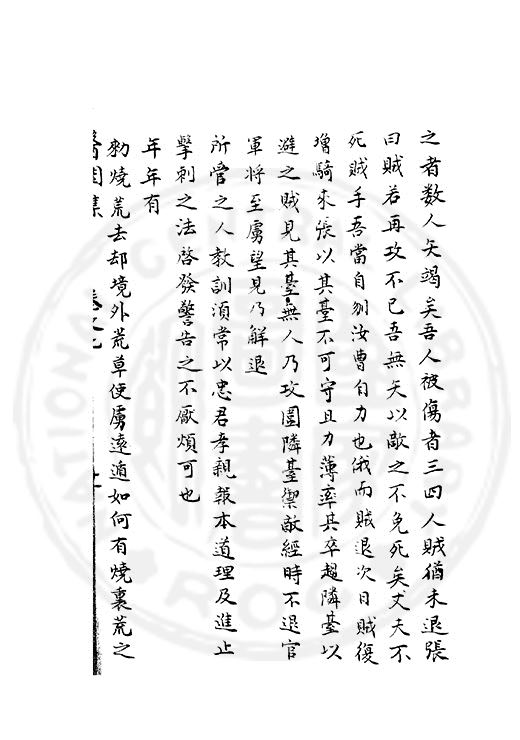 之者数人矢竭矣吾人被傷者三四人賊猶未退張
曰賊若再攻不已吾無矢以敵之不免死矣丈夫不
死賊手吾當自刎汝曹自力也俄而賊退次日賊復
増騎來張以其臺不可守且力薄率其卒趨隣臺以
避之賊見其臺無人乃攻圍隣臺禦敵經時不退官
軍将至虜望見乃解退
所管之人教訓須常以忠君孝親報本道理及進止
撃刺之法啓發警告之不厭煩可也
年年有
勑燒荒去却境外荒草使虜遠遁如何有燒裏荒之